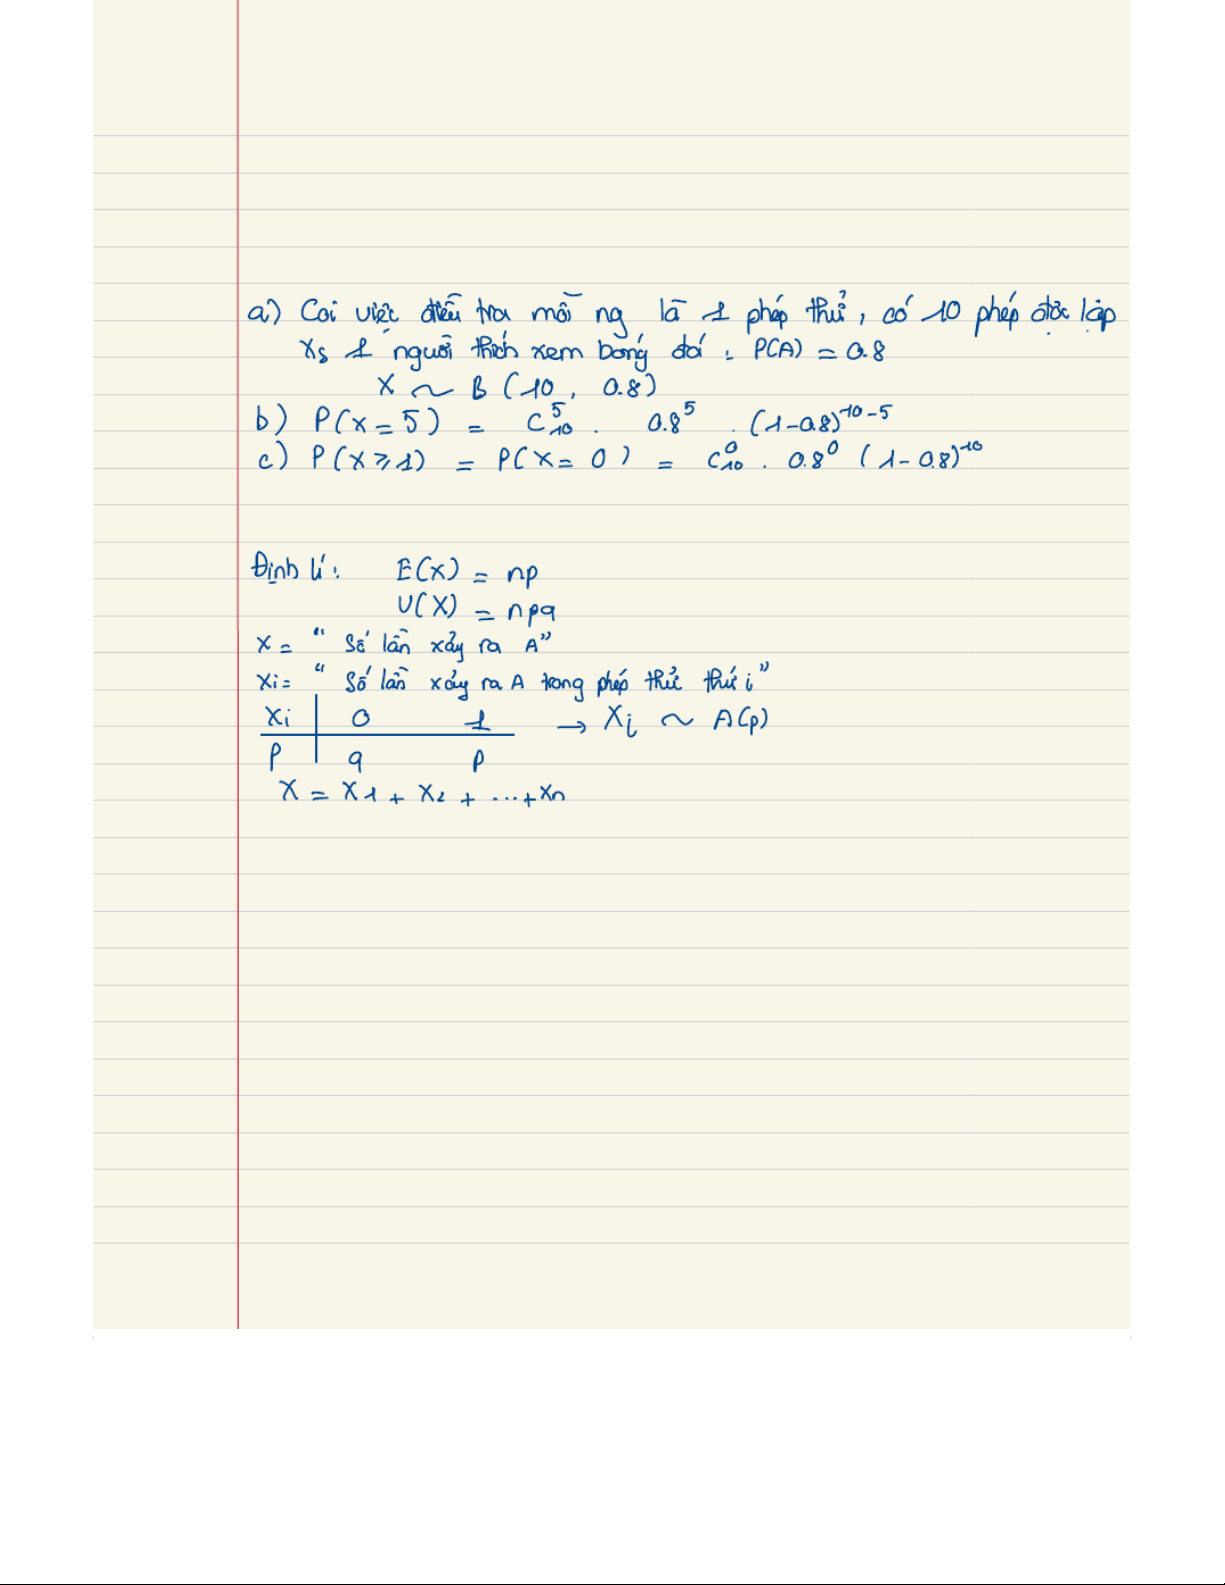 a) Coi việc điều tra mỗi ng là 1 phép thử, có 10 phép độc lập
Xs 1 người thích xem bóng đá : P(A) = 0.8
X ~ B (10, 0.8)
b) P(X = 5) = C₁₀⁵ . 0.8⁵ . (1-0.8)¹⁰⁻⁵
c) P(X ≥ 1) = P(X = 0) = C₁₀⁰ . 0.8⁰ (1-0.8)¹⁰
Định lí : E(X) = np
V(X) = npq
X = "Số lần xảy ra A"
Xi = "Số lần xảy ra A trong phép thử thứ i"
Xi | 0 1 → Xi ~ A(p)
P | q p
X = X1 + X2 + ... + Xn